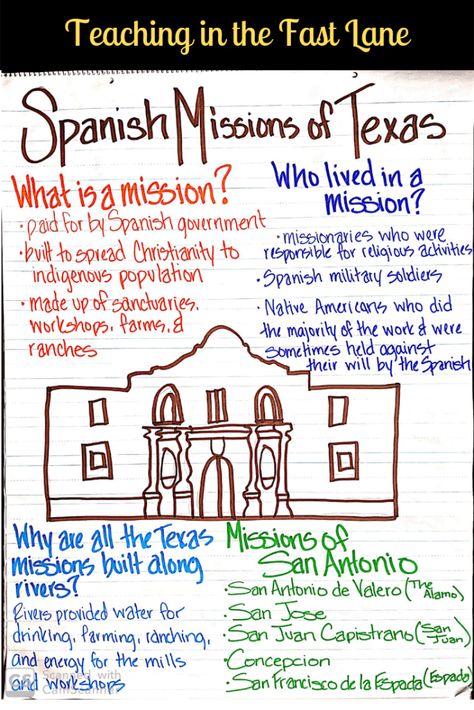 Teaching in the Fast Lane
Spanish Missions of Texas
What is a mission?
• paid for by Spanish government
• built to spread Christianity to
indigenous population
• made up of sanctuaries,
workshops, farms, &
ranches
Who lived in a
mission?
• missionaries who were
responsible for religious activities
• Spanish military soldiers
• Native Americans who did
the majority of the work & were
sometimes held against
their will by the Spanish
Why are all the Texas
missions built along
rivers?
Rivers provided water for
drinking, farming, ranching,
and energy for the mills
and workshops
Missions of
San Antonio
• San Antonio de Valero (The Alamo)
• San Jose
• San Juan Capistrano (San Juan)
• Concepcion
• San Francisco de la Espada (Espada)
CS
Scanned with
CamScanner